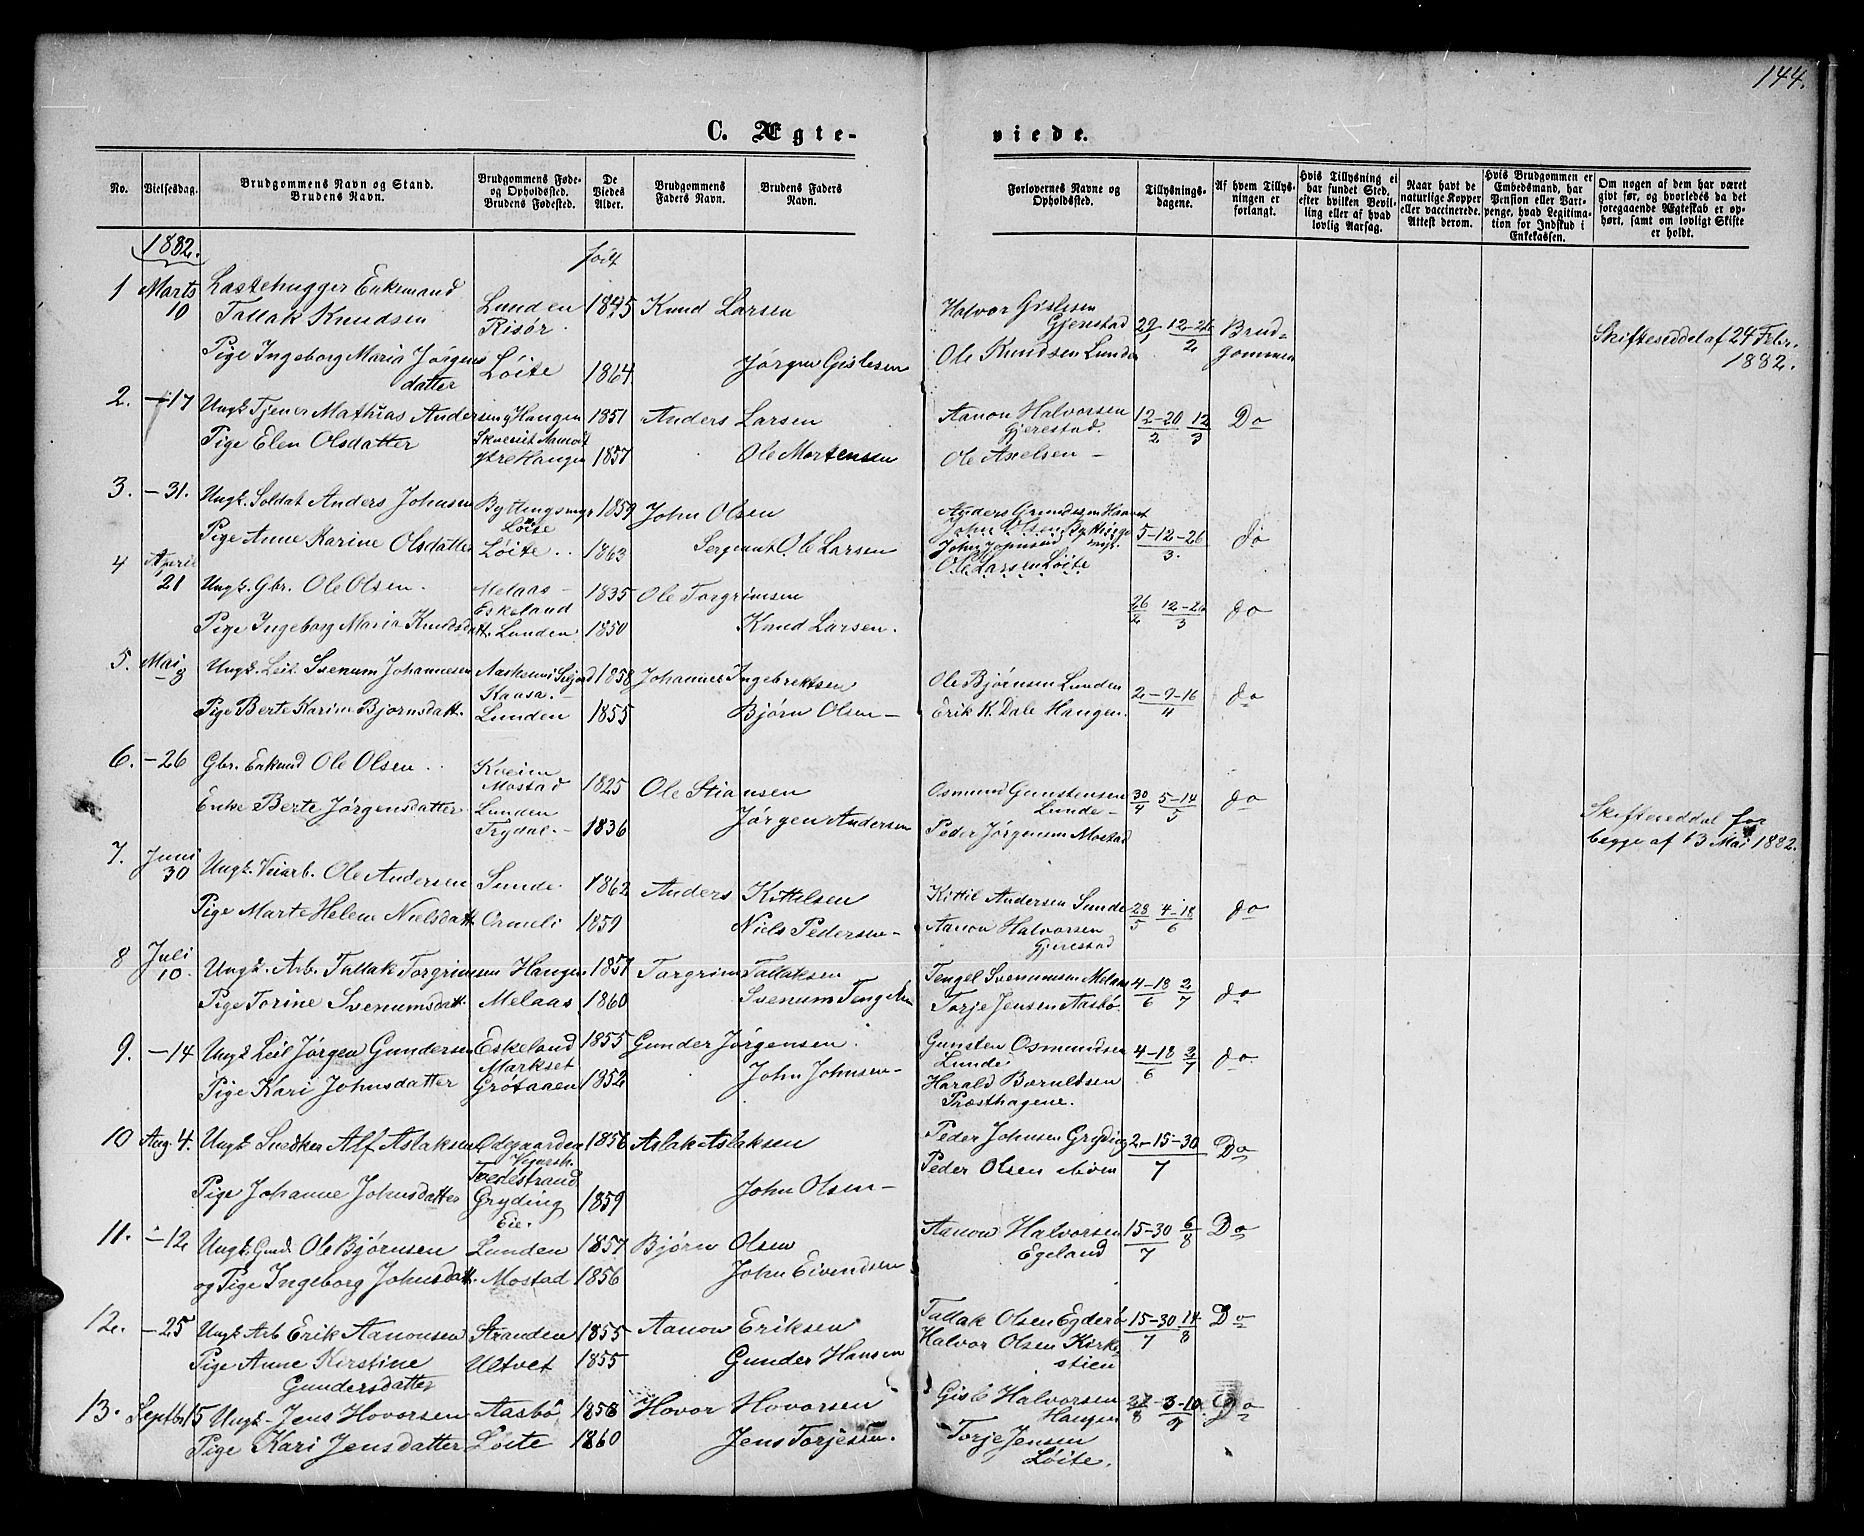 144.
C. Ægte-
viede.
No.
Vielsesdag.
Brudgommens Navn og Stand.
Brudens Navn.
Brudgommens Føde-
og Opholdssted.
Brudens Fødested.
De
Viedes
Alder.
Brudgommens
Faders Navn.
Brudens Faders
Navn.
Forlovernes Navne og
Opholdssted.
Tillysnings-
dagene.
Af hvem Tillys-
ningen er
forlangt.
Hvis Tillysning ei
har fundet Sted,
efter hvilken Bevil-
ling eller af hvad
lovlig Aarsag.
Naar havt de
naturlige Kopper
eller vaccinerede.
Attest derom.
Hvis Brudgommen er
Embedsmand, har
Pension eller Vart-
penge, hvad Legitima-
tion for Indskud i
Enkekassen.
Om nogen af dem har været
gift før, og hvorledes da det
foregaaende Ægteskab er op-
hørt, samt om lovligt Skifte
er holdt.
1882.
født
1 Marts Lastehugger Enkemand
10 Tallak Knudsen Lunden 1845 Knud Larsen
Risør.
Pige Ingeborg Maria Jørgens Løite 1864 Jørgen Gislesen
datter
Halvor Gislesen
Gjerestad
12-26 Brud-
2 gommen
Ole Knudsen Lunde
Skifteseddel af 24 Febr.
1882.
2. -17 Ungk. Tjener Mathias Andersen Hangen 1851 Anders Larsen
Pige Elen Olsdatter
ytre Hangen 1857 Ole Mortensen
Aanon Halvorsen 12-20 12 Do
Gjerestad. 2 3
Ole Axelsen -
3. -31. Ungk. Soldat Anders Johnsen Byttingsmyr 1859 John Olsen
Løite
Pige Anne Karine Olsdatter Løite 1863 Sergeant Ole Larsen
5-12-26 do
3.
Ole Larsen Løite
4 April
21 Ungk. Gbr. Ole Olsen. Melaas - 1835 Ole Torgrimsen
Eskeland
Pige Ingeborg Maria Knudsdatt. Lunden 1850 Knud Larsen.
26 12-26 do
2 3
5. Mai
3 Ungk. Leil. Svenum Johannesen Seljord 1858 Johannes Ingebrektsen
Kaasa. -
Pige Berte Karine Bjørnsdatt. Lunden 1855 Bjørn Olsen -
Ole Bjørnsen Lunden
2-9-16 do
4
Erik K. Dale Hangen.
6. -26 Gbr. Enkemd Ole Olsen Kveim
Mostad 1825 Ole Stiansen
Enke Berte Jørgensdatter Lunden
Trydal. - 1836 Jørgen Andersen
Osmund Gunstensen 30 5-14 do
Lunde - 4 5
Peder Jørgensen Mostad
Skifteseddel for
begge af 13 Mai 1882.
7. Juni
30 Ungk. Veiarb. Ole Andersen Sunde 1862 Anders Kittelsen
Pige Marte Helene Nielsdatt. Ormeli 1859 Niels Pedersen -
Kittil Andersen Sunde 28 4-18 do
5 6
Aanon Halvorsen
Gjerestad
8 Juli
10. Ungk. Arb. Tallak Torgrimsen Hangen 1857 Torgrim Tallaksen
Pige Torine Svenumsdatt. Melaas 1860 Svenum Tengelsen
Tengel Svenumsen Melaas 4-18 2 do
6 7
Torje Jensen Aasbø.
9. -14 Ungk Leil Jørgen Gundersen Eskeland 1855 Gunder Jørgensen
Markset
Pige Kari Johnsdatter Grotaaen 1852 John Johnsen -
Gunsten Osmundsen 4-18 2 do
Lunde 6 7
Harald Berntsen
Præsthagene.
10 Aug. 4. Ungk Snedker Alf Aslaksen Odegaarden 1856 Aslak Aslaksen
Vegarsh.
Tvedestrand
Pige Johanne Johnsdatter Gryding 1859 John Olsen -
Eie.
Peder Johnsen Gryding 2-15-30 Do
7
Peder Olsen Moen
11. -12 Ungk. Gmd. Ole Bjørnsen Lunden 1857 Bjørn Olsen
og Pige Ingeborg Johnsdatt. Mostad 1856 John Eivendsen
Aanon Halvorsen 15-30 6 Do
Egeland 7 8
12. -25 Ungk Arb Erik Aanonsen Stranden 1855 Aanon Eriksen
Pige Anne Kirstine Ultvet 1855 Gunder Hansen
Gundersdatter
Tallak Olsen Egderø 15-30 14 Do
7 8
Halvor Olsen Kirke-
stien
13. Septbr 15 Ungk- Jens Hovorsen Aasbø 1858 Hovor Hovorsen
Pige Kari Jensdatter Løite 1860 Jens Torjesen.
Gisle Halvorsen 27 3-10 Do
Hangen 8 9
Torje Jensen
Løite.